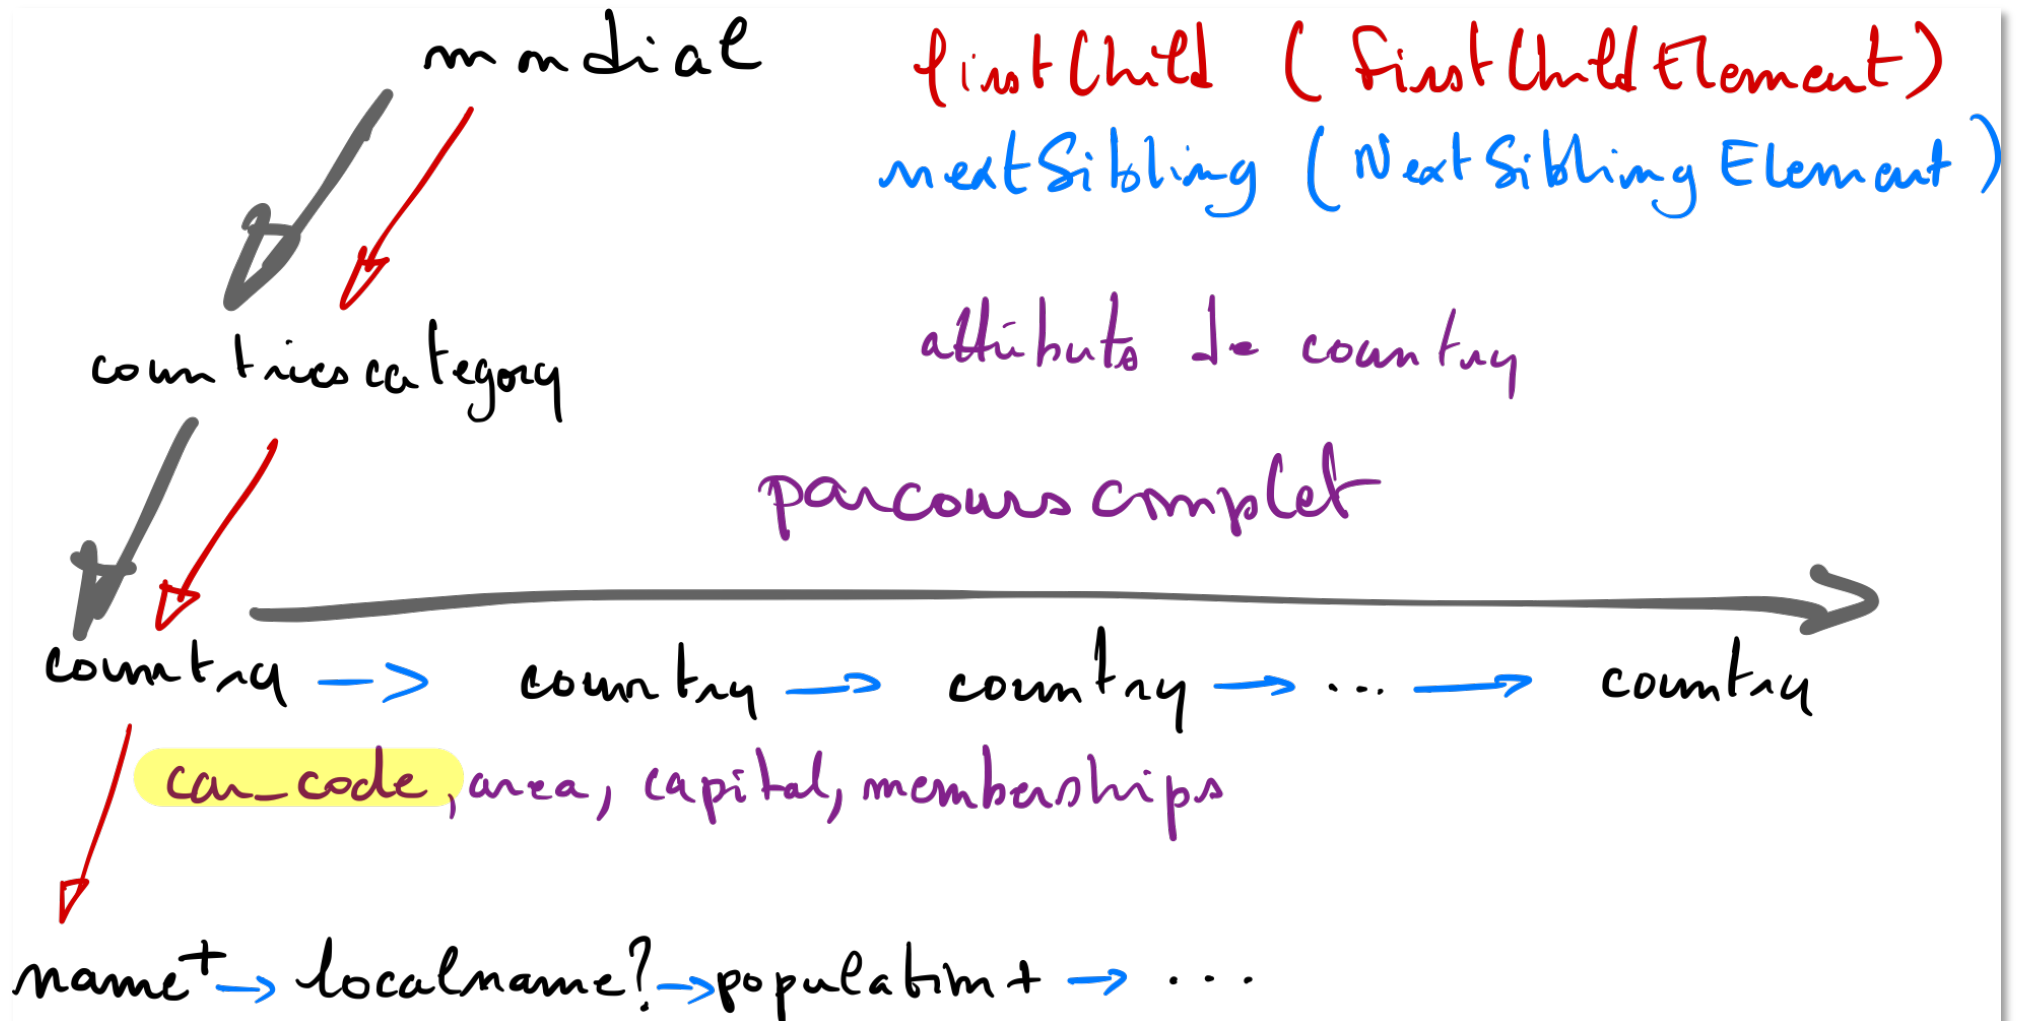 mondial
firstChild (FirstChildElement)
nextSibling (NextSiblingElement)
countriescategory
attributs de country
parcours complet
country -> country -> country -> ... -> country
car_code, area, capital, memberships
name+ -> localname? -> population+ -> ...